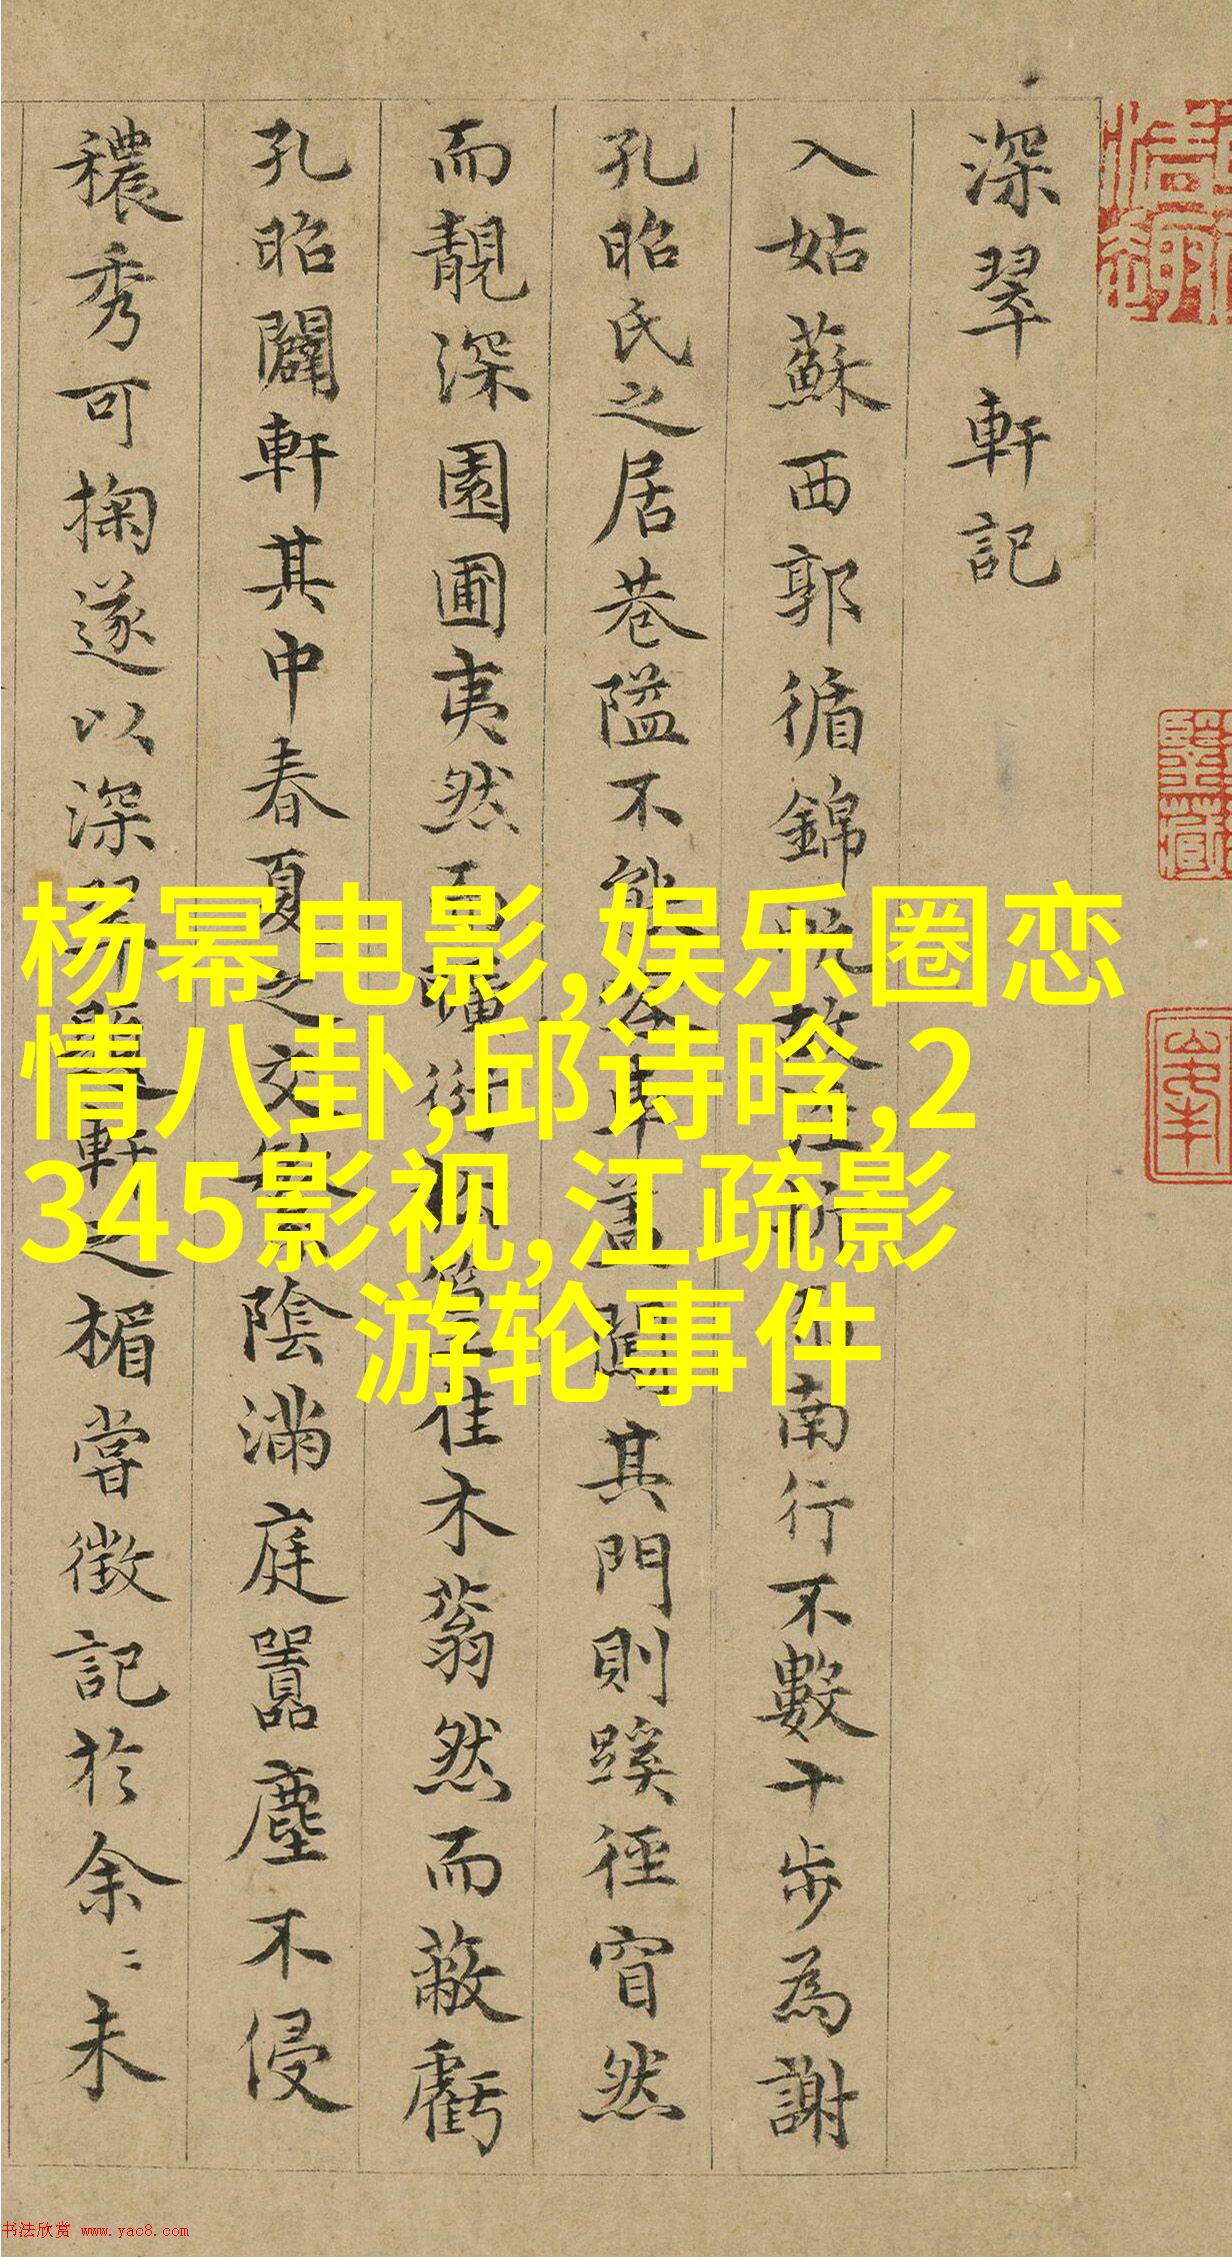 深翠軒記
入姑蘇西郭循錦帆故折而南行不數十步為謝
孔昭氏之居巷隘不能容車蓋闖其門則蹊徑窅然
而靚深園圃夷然而曠衍佳木蓊然而蔽虧
孔昭闢軒其中春夏之交繁陰滿庭囂塵不侵
穠秀可掬遂以深翠題軒之楣嘗徵記於余〻未
杨幂电影,娱乐圈恋
情八卦,邱诗晗,2
345影视,江疏影
游轮事件
书法欣赏 www.yac8.com